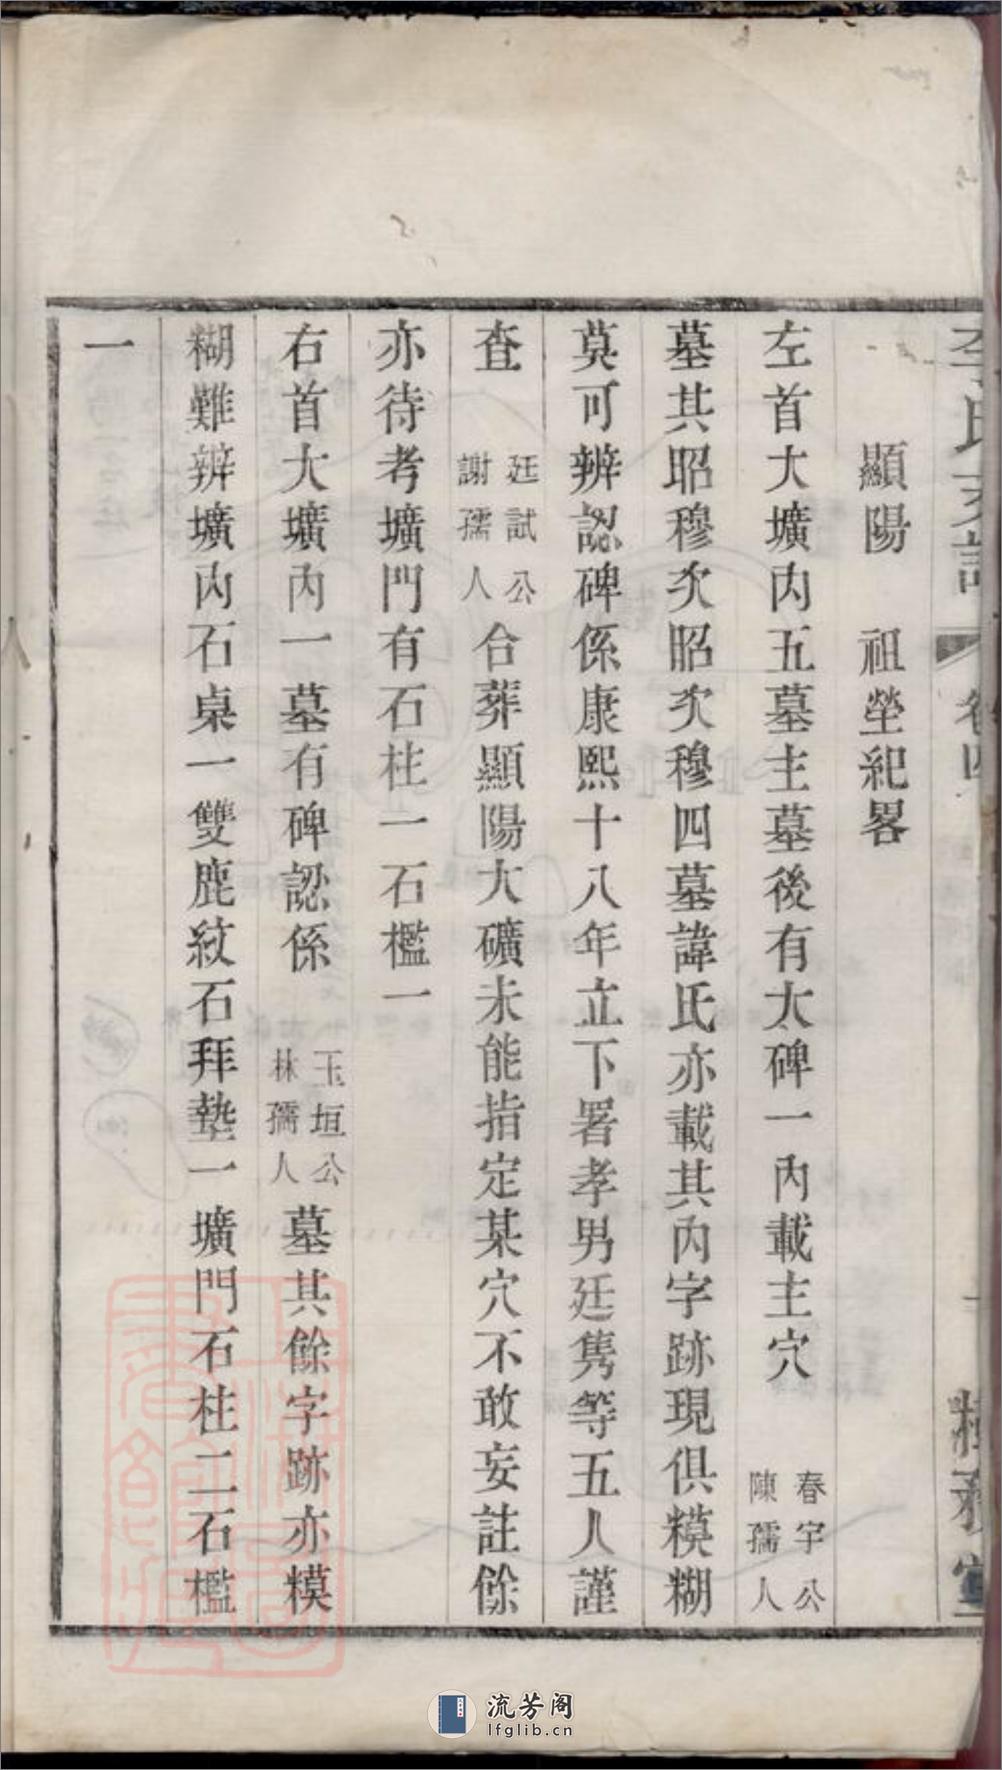 李氏支譜 卷四
顯陽 祖塋紀畧
左首大壙内五墓主墓後有大碑一內載主穴 春宇公 陳孺人
墓其昭穆次昭次穆四墓諱氏亦載其內字跡現俱糢糊
莫可辨認碑係康熙十八年立下署孝男廷雋等五人謹
査 廷試公 謝孺人 合葬顯陽大礦未能指定某穴不敢妄註餘
亦待考壙門有石柱一石檻一
右首大壙內一墓有碑認係 玉垣公 林孺人 墓其餘字跡亦糢
糊難辨壙内石桌一雙鹿紋石拜墊一壙門石柱二石檻
一
流芳阁
lfglib.cn